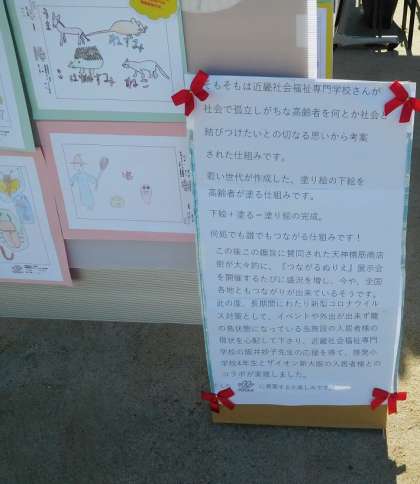 ねずみ
そもそもは近畿社会福祉専門学校さんが
社会で孤立しがちな高齢者を何とか社会と
結びつけたいとの切なる思いから考案
された仕組みです。
若い世代が作成した、塗り絵の下絵を
高齢者が塗る仕組みです。
下絵+塗る=塗り絵の完成。
何処でも誰でもつながる仕組みです!
この後この趣旨に賛同された天神橋筋商店
街が大々的に、『つながるぬりえ』展示会
を開催するたびに盛況を増し、今や、全国
各地ともつながりが出来ているそうです。
此の度、長期間にわたり新型コロナウイル
ス対策として、イベントや外出が出来ず籠
の鳥状態になっている当施設の入居者様の
現状を心配して下さり、近畿社会福祉専門
学校の坂井妙子先生の応援を得て、啓発小
学校4年生とザイオン新大阪の入居者様との
コラボが実現しました。
に展開するか楽しみです